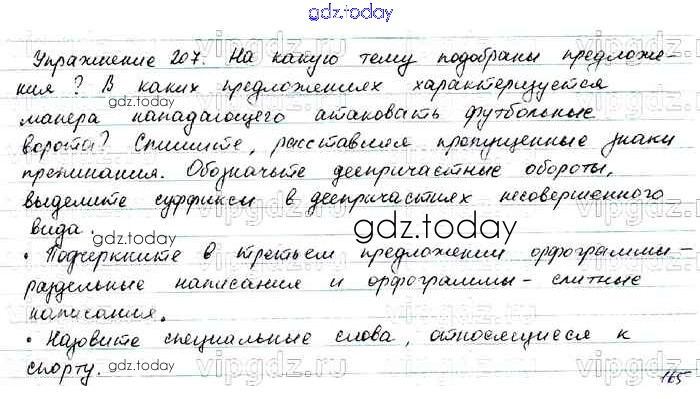 gdz.today
Упражнение 207. На какую тему подобраны предложе-
ния? В каких предложениях характеризуется
gdz.today
манера нападающего атаковать футбольные
ворота? Спишите, расставляя пропущенные знаки
препинания. Обозначьте деепричастные обороты,
выделите суффиксы в деепричастиях несовершенного
вида.
gdz.today
gdz.today
• Подчеркните в третьем предложении орфограммы-
раздельные написания и орфограммы - слитные
написания.
• Назовите специальные слова, относящиеся к
спорту.
gdz.today
vipgdz.ru
165